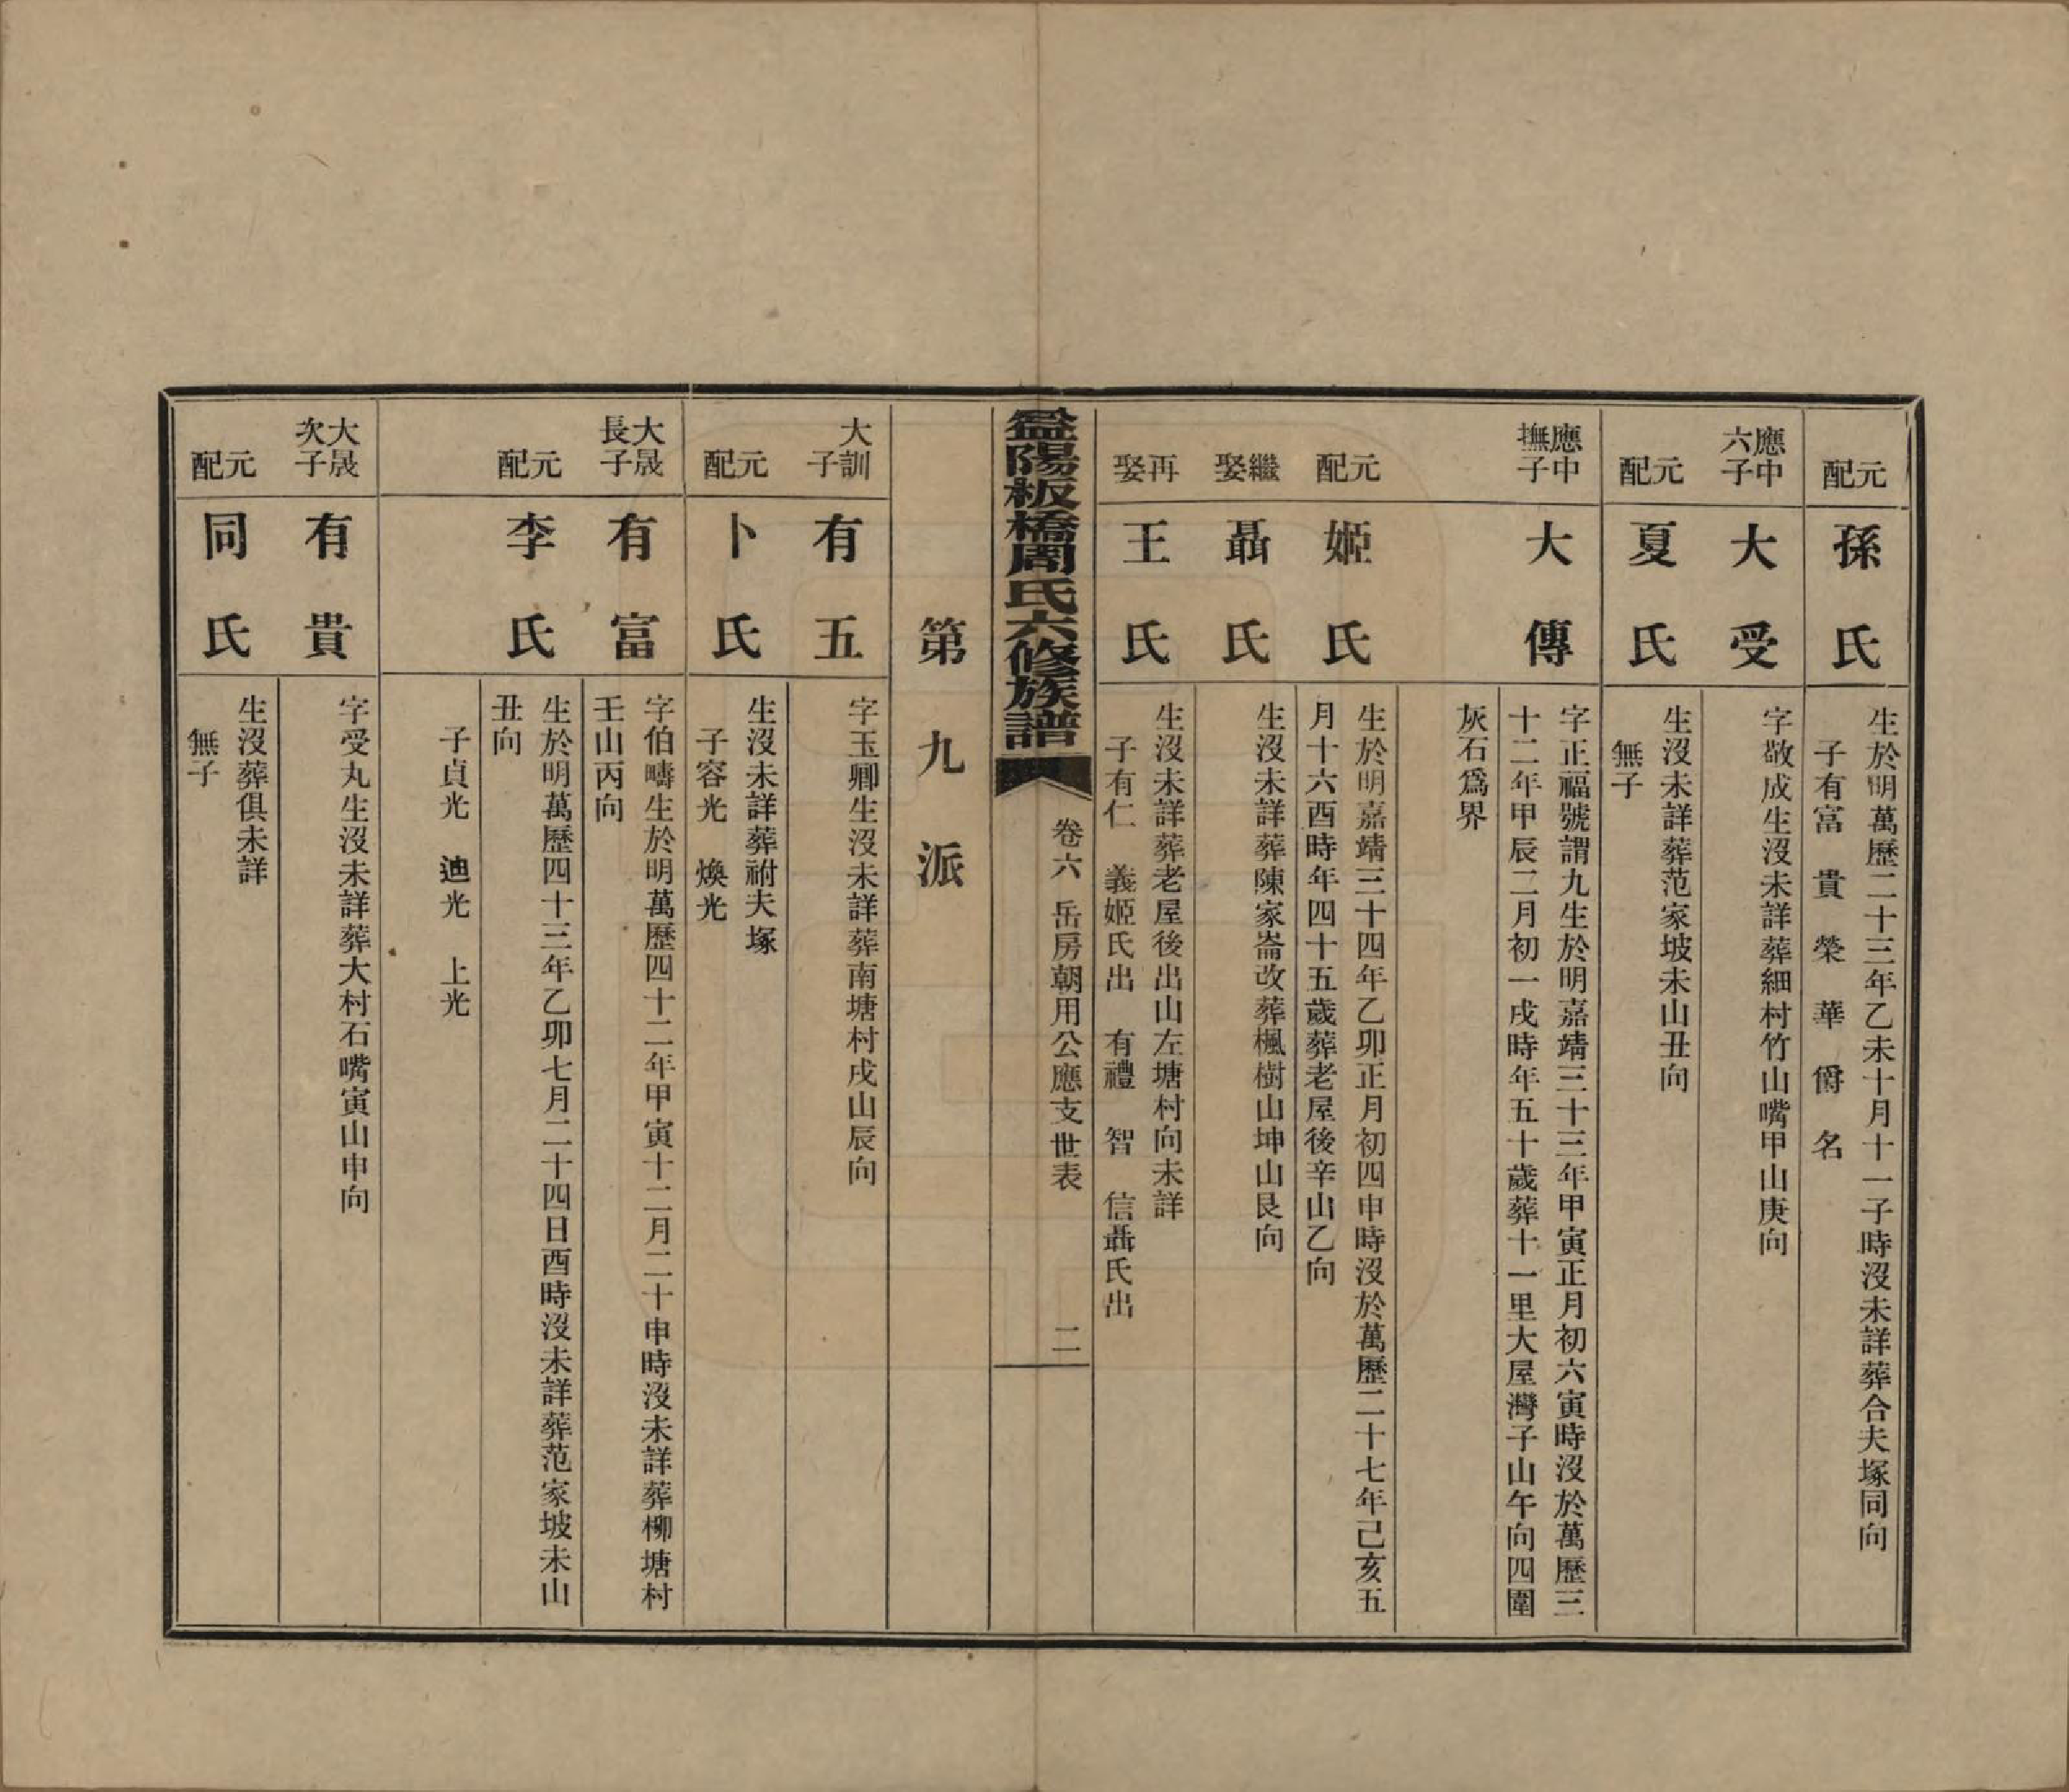 元配
孫氏
生於明萬歷二十三年乙未十月十一子時沒未詳葬合夫塚同向
子有富 貴 榮 華 爵 名
應中六子
大受
字敬成生沒未詳葬細村竹山嘴甲山庚向
元配
夏氏
生沒未詳葬范家坡未山丑向
無子
應中撫子
大傳
字正福號謂九生於明嘉靖三十三年甲寅正月初六寅時沒於萬歷三
十二年甲辰二月初一戌時年五十歲葬十一里大屋灣子山午向四圍
灰石爲界
元配
姬氏
生於明嘉靖三十四年乙卯正月初四申時沒於萬歷二十七年己亥五
月十六酉時年四十五歲葬老屋後辛山乙向
繼娶
聶氏
生沒未詳葬陳家崙改葬楓樹山坤山艮向
再娶
王氏
生沒未詳葬老屋後出山左塘村向未詳
子有仁 義姬氏出 有禮 智 信聶氏出
益陽板橋周氏六修族譜
卷六 岳房朝用公應支世表
二
第九派
大訓子
有五
字玉卿生沒未詳葬南塘村戌山辰向
元配
卜氏
生沒未詳葬祔夫塚
子容光 煥光
大晟長子
有富
字伯疇生於明萬歷四十二年甲寅十二月二十申時沒未詳葬柳塘村
壬山丙向
元配
李氏
生於明萬歷四十三年乙卯七月二十四日酉時沒未詳葬范家坡未山
丑向
子貞光 迪光 上光
大晟次子
有貴
字受丸生沒未詳葬大村石嘴寅山申向
元配
同氏
生沒葬俱未詳
無子